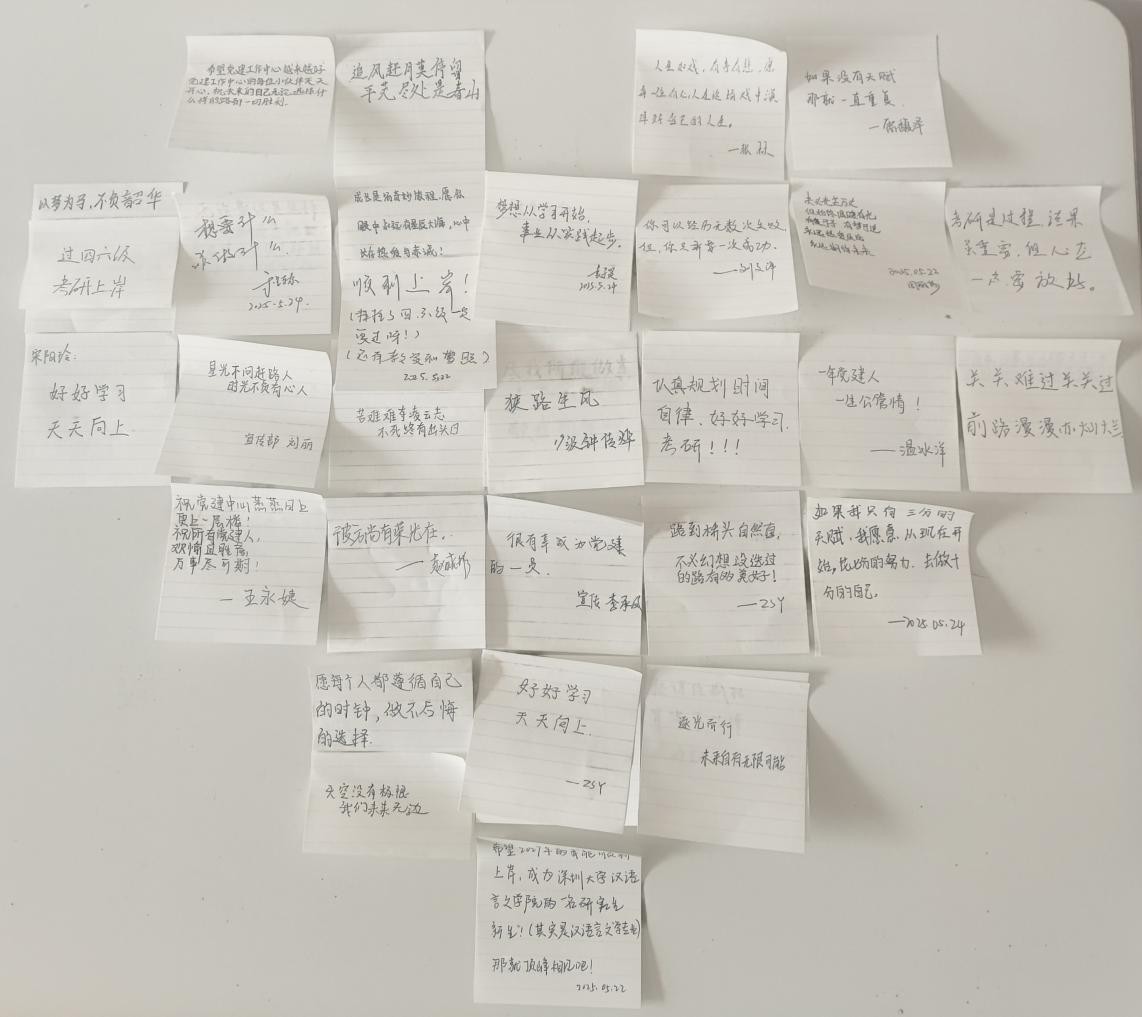 希望党建工作中心越来越好
党建工作中心的每位小伙伴天天
开心，祝未来的自己无论选择什
么样的路都一切胜利.
追风赶月莫停留
平芜尽处是春山
人生如戏，有喜有悲，愿
每一位有心人生这场戏中演
绎好自己的人生。
如果没有天赋
那就一直重复
以梦为马，不负韶华
过四六级
考研上岸
想要什么
就
2025.5.24.
成长是场奇妙旅程，愿你
眼中有星辰大海，心中
顺利上岸！
(拜托了四、六级一定
要过呀！)
(还有教资和驾照)
2025.5.22
梦想从学习开始，
事业从实践起步。
2025.5.24
你可以经历无数次失败，
但，你只需要一次成功。
2025.05.22
考研是过程，结果
关重要，但心态
一定要放好。
宋阳玲：
好好学习
天天向上
星光不问赶路人
时光不负有心人
宣传部 刘丽
苦难难夺凌云志
不死终有出头日
狭路生风
认真规划时间
自律、好好学习.
考研！！！
一年党建人
一生公管情！
——温冰洋
关关难过关关过
前路漫漫亦灿烂
祝党建中心蒸蒸日上
更上一层楼！
祝所有党建人，
万事尽可期！
—王永婕
彼方尚有荣光在..
很有幸成为党建
的一员.
宣传 李承
路到桥头自然直，
不必幻想没选过
的路有多美好！
——ZSY
如果我只有三分的
天赋，我愿意，从现在开
始，七分的努力. 去做十
分的自己。
——2025.05.24
愿每个人都遵循自己
的时钟，做不后悔
的选择.
天空没有极限
我们未来无边
好好学习
天天向上.
——ZSY
逐光而行
未来自有无限可能
希望2027年的我能顺利
上岸，成为深圳大学汉语
言文学院的一名研究生
新生！(其实是汉语言文学专业)
那就顶峰相见吧！
2025.05.22